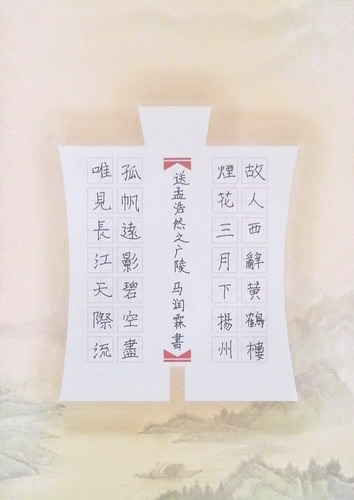 故人西辭黃鶴樓
煙花三月下揚州
送孟浩然之广陵 马润霖書
孤帆遠影碧空盡
唯見長江天際流